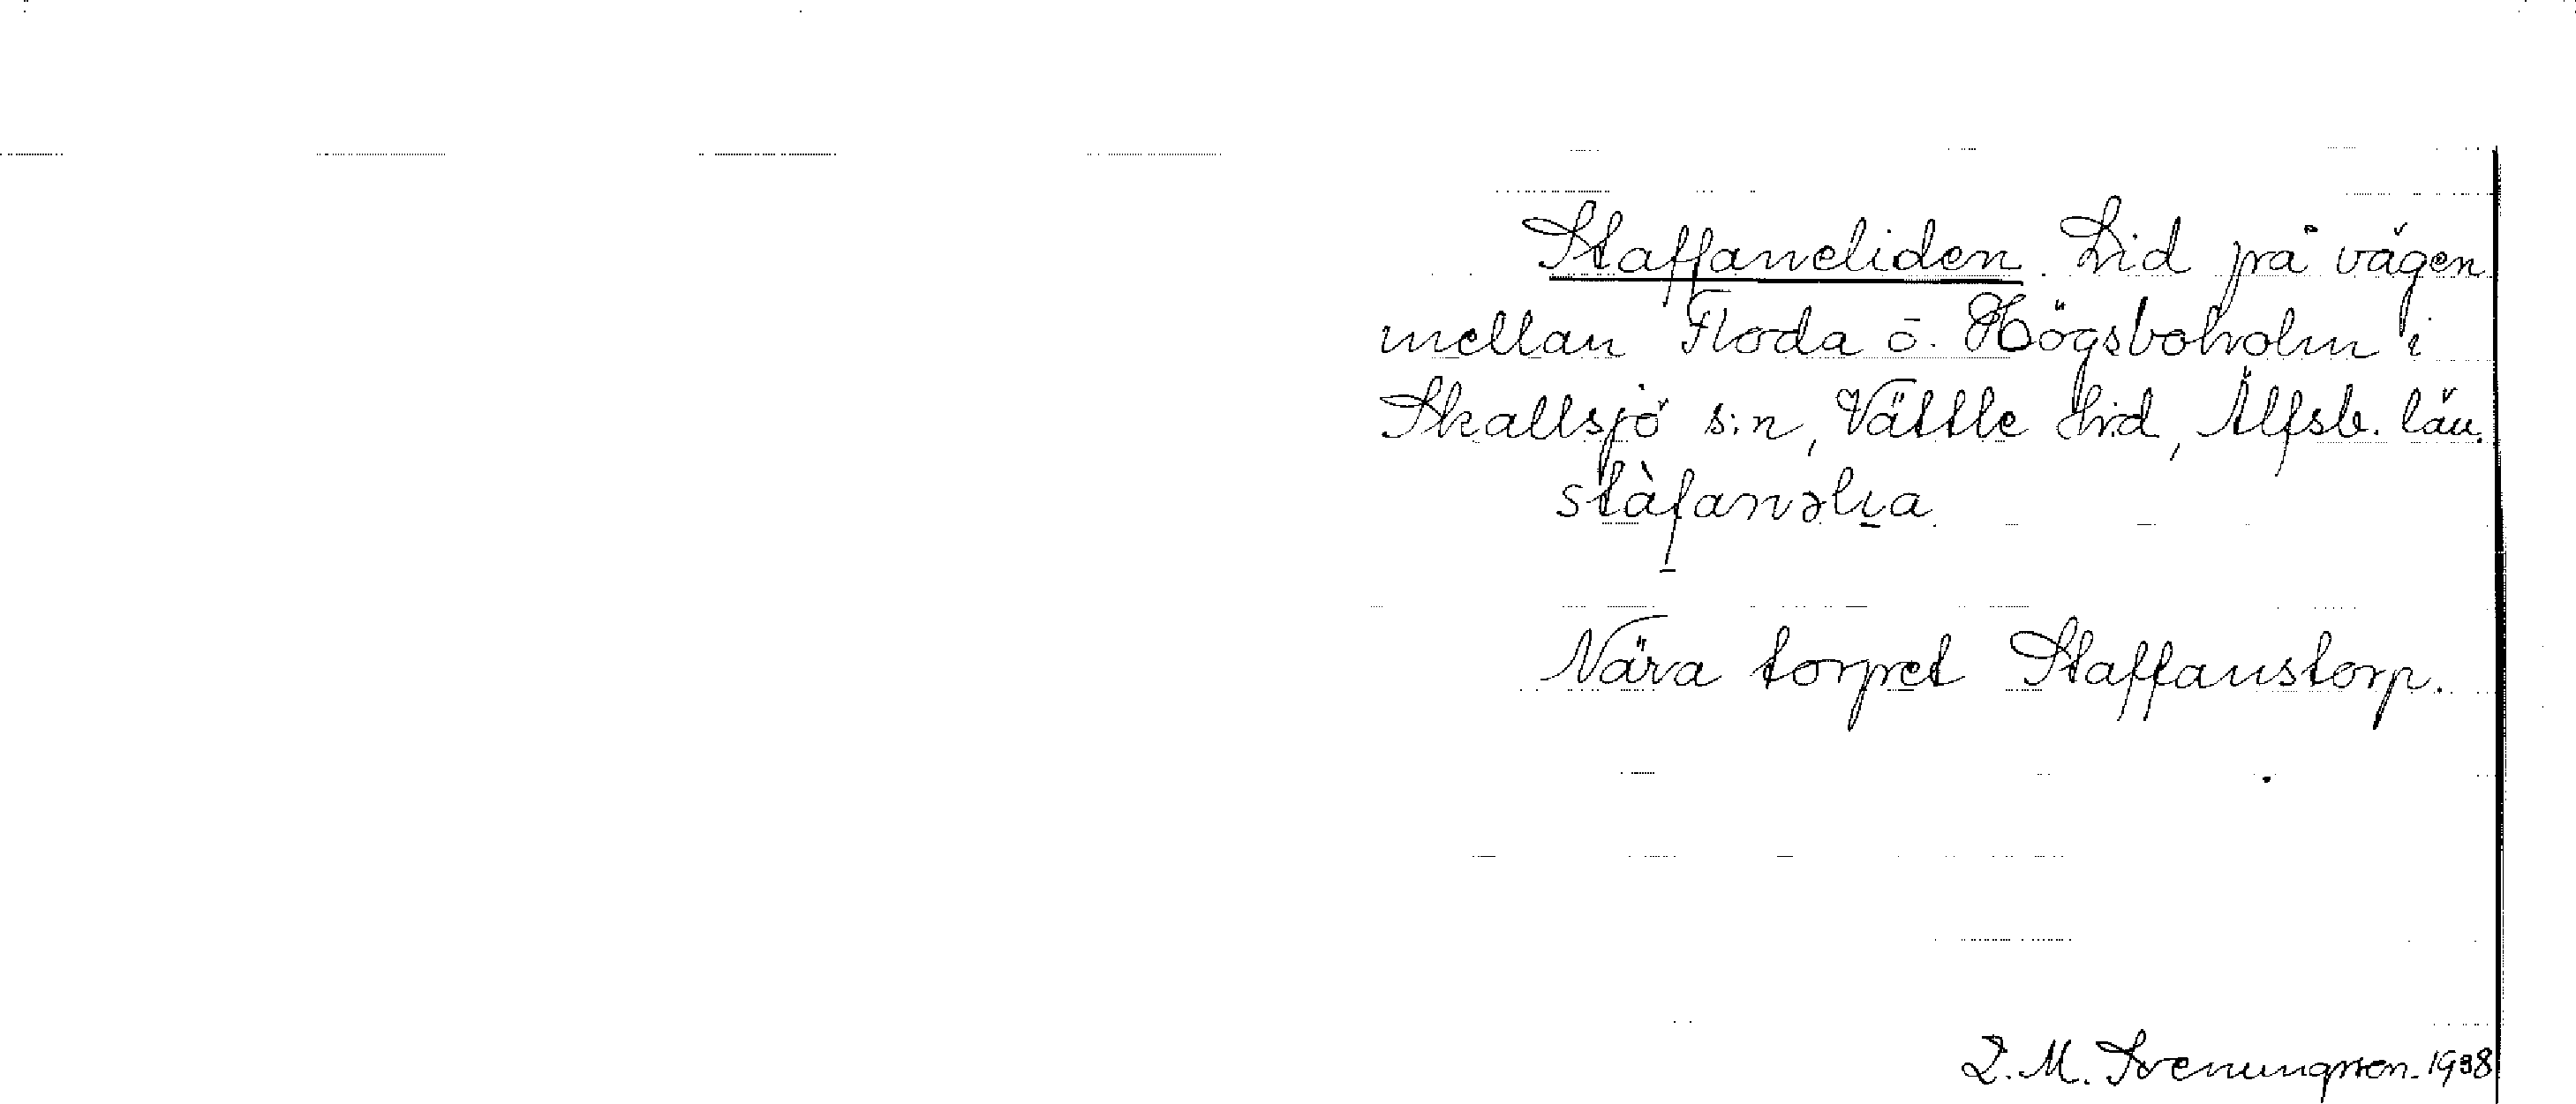 Staffaneliden. Lid på vägen
mellan Floda o. Högsboholm i
Skallsjö s:n, Vättle hd, Älfsb. län.
stàfanəlıa
Nära torpet Staffanstorp.
L. M. Svenungsson. 1938